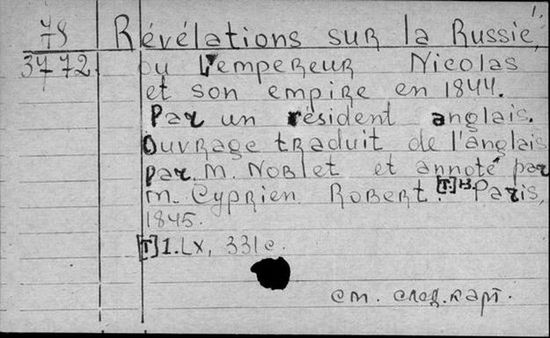 78 Révélations sur la Russie,
3472 ou l'empereur Nicolas
et son empire en 1844.
Par un résident anglais.
Ouvrage traduit de l'anglais
par M. Noblet et annoté par
M. Cyprien Robert. [T.]1-3 Paris,
1845.
[T]1. LX, 331c.
см. след. карт.